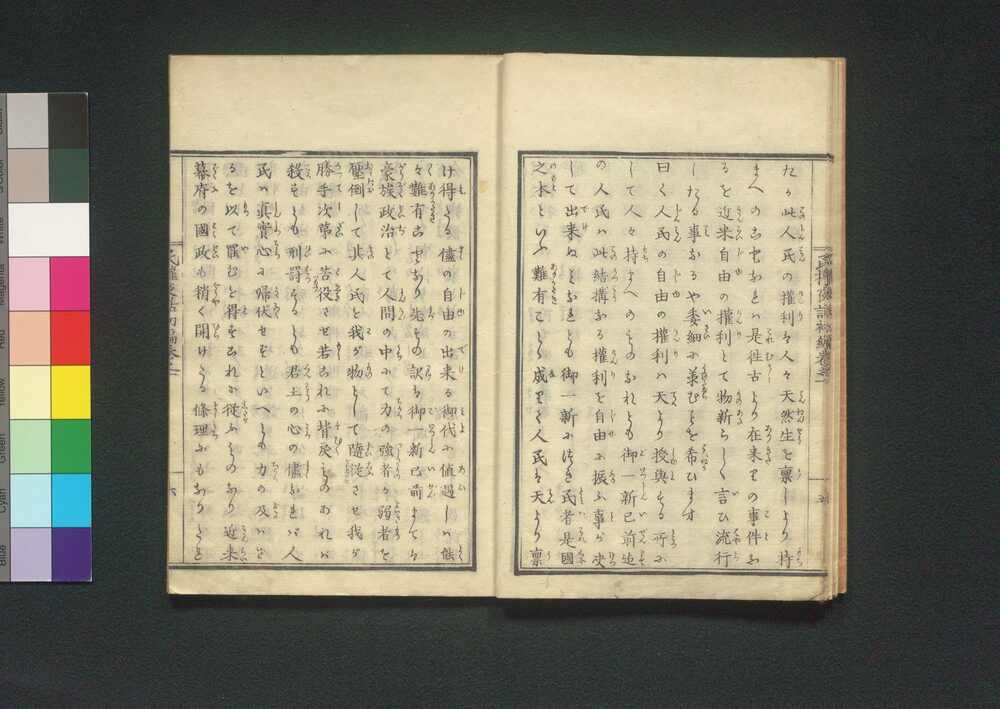 たる此人民の權利を人々天然生を禀しより持
まへの者なれバ是往古より在来りの事件な
るを近来自由の權利とて物新らしく言ひ流行
したる事なるや委細に承むことを希ひます
曰く人民の自由の權利ハ天より授與する所に
して人々持まへのものなれども御一新已前迠
の人民ハ此結構なる權利を自由に振ふ事が
して出来ぬとなれども御一新につき民者是國
之本といふ難有ことゝ成りて人民も天より禀
け得たる儘の自由の出来る御代に値遇しハ
々難有
豪族政治とて人間の中にて力の強者が弱者を
壓倒して其人民を我が物として隨従させ我が
勝手次第に苦役させ若これに背戻ものあれバ
殺すとも刑罰するとも君主の心の儘なれバ人
民ハ眞實心に帰伏せずといへども力の及バざ
るを以て罷むを得ずこれに従ふものなり近来
幕府の國政も稍く開けたる條理にもなりたると
民權夜話初編卷之一
六
Blue
Cyan
Green
Yellow
Red
Magenta
White